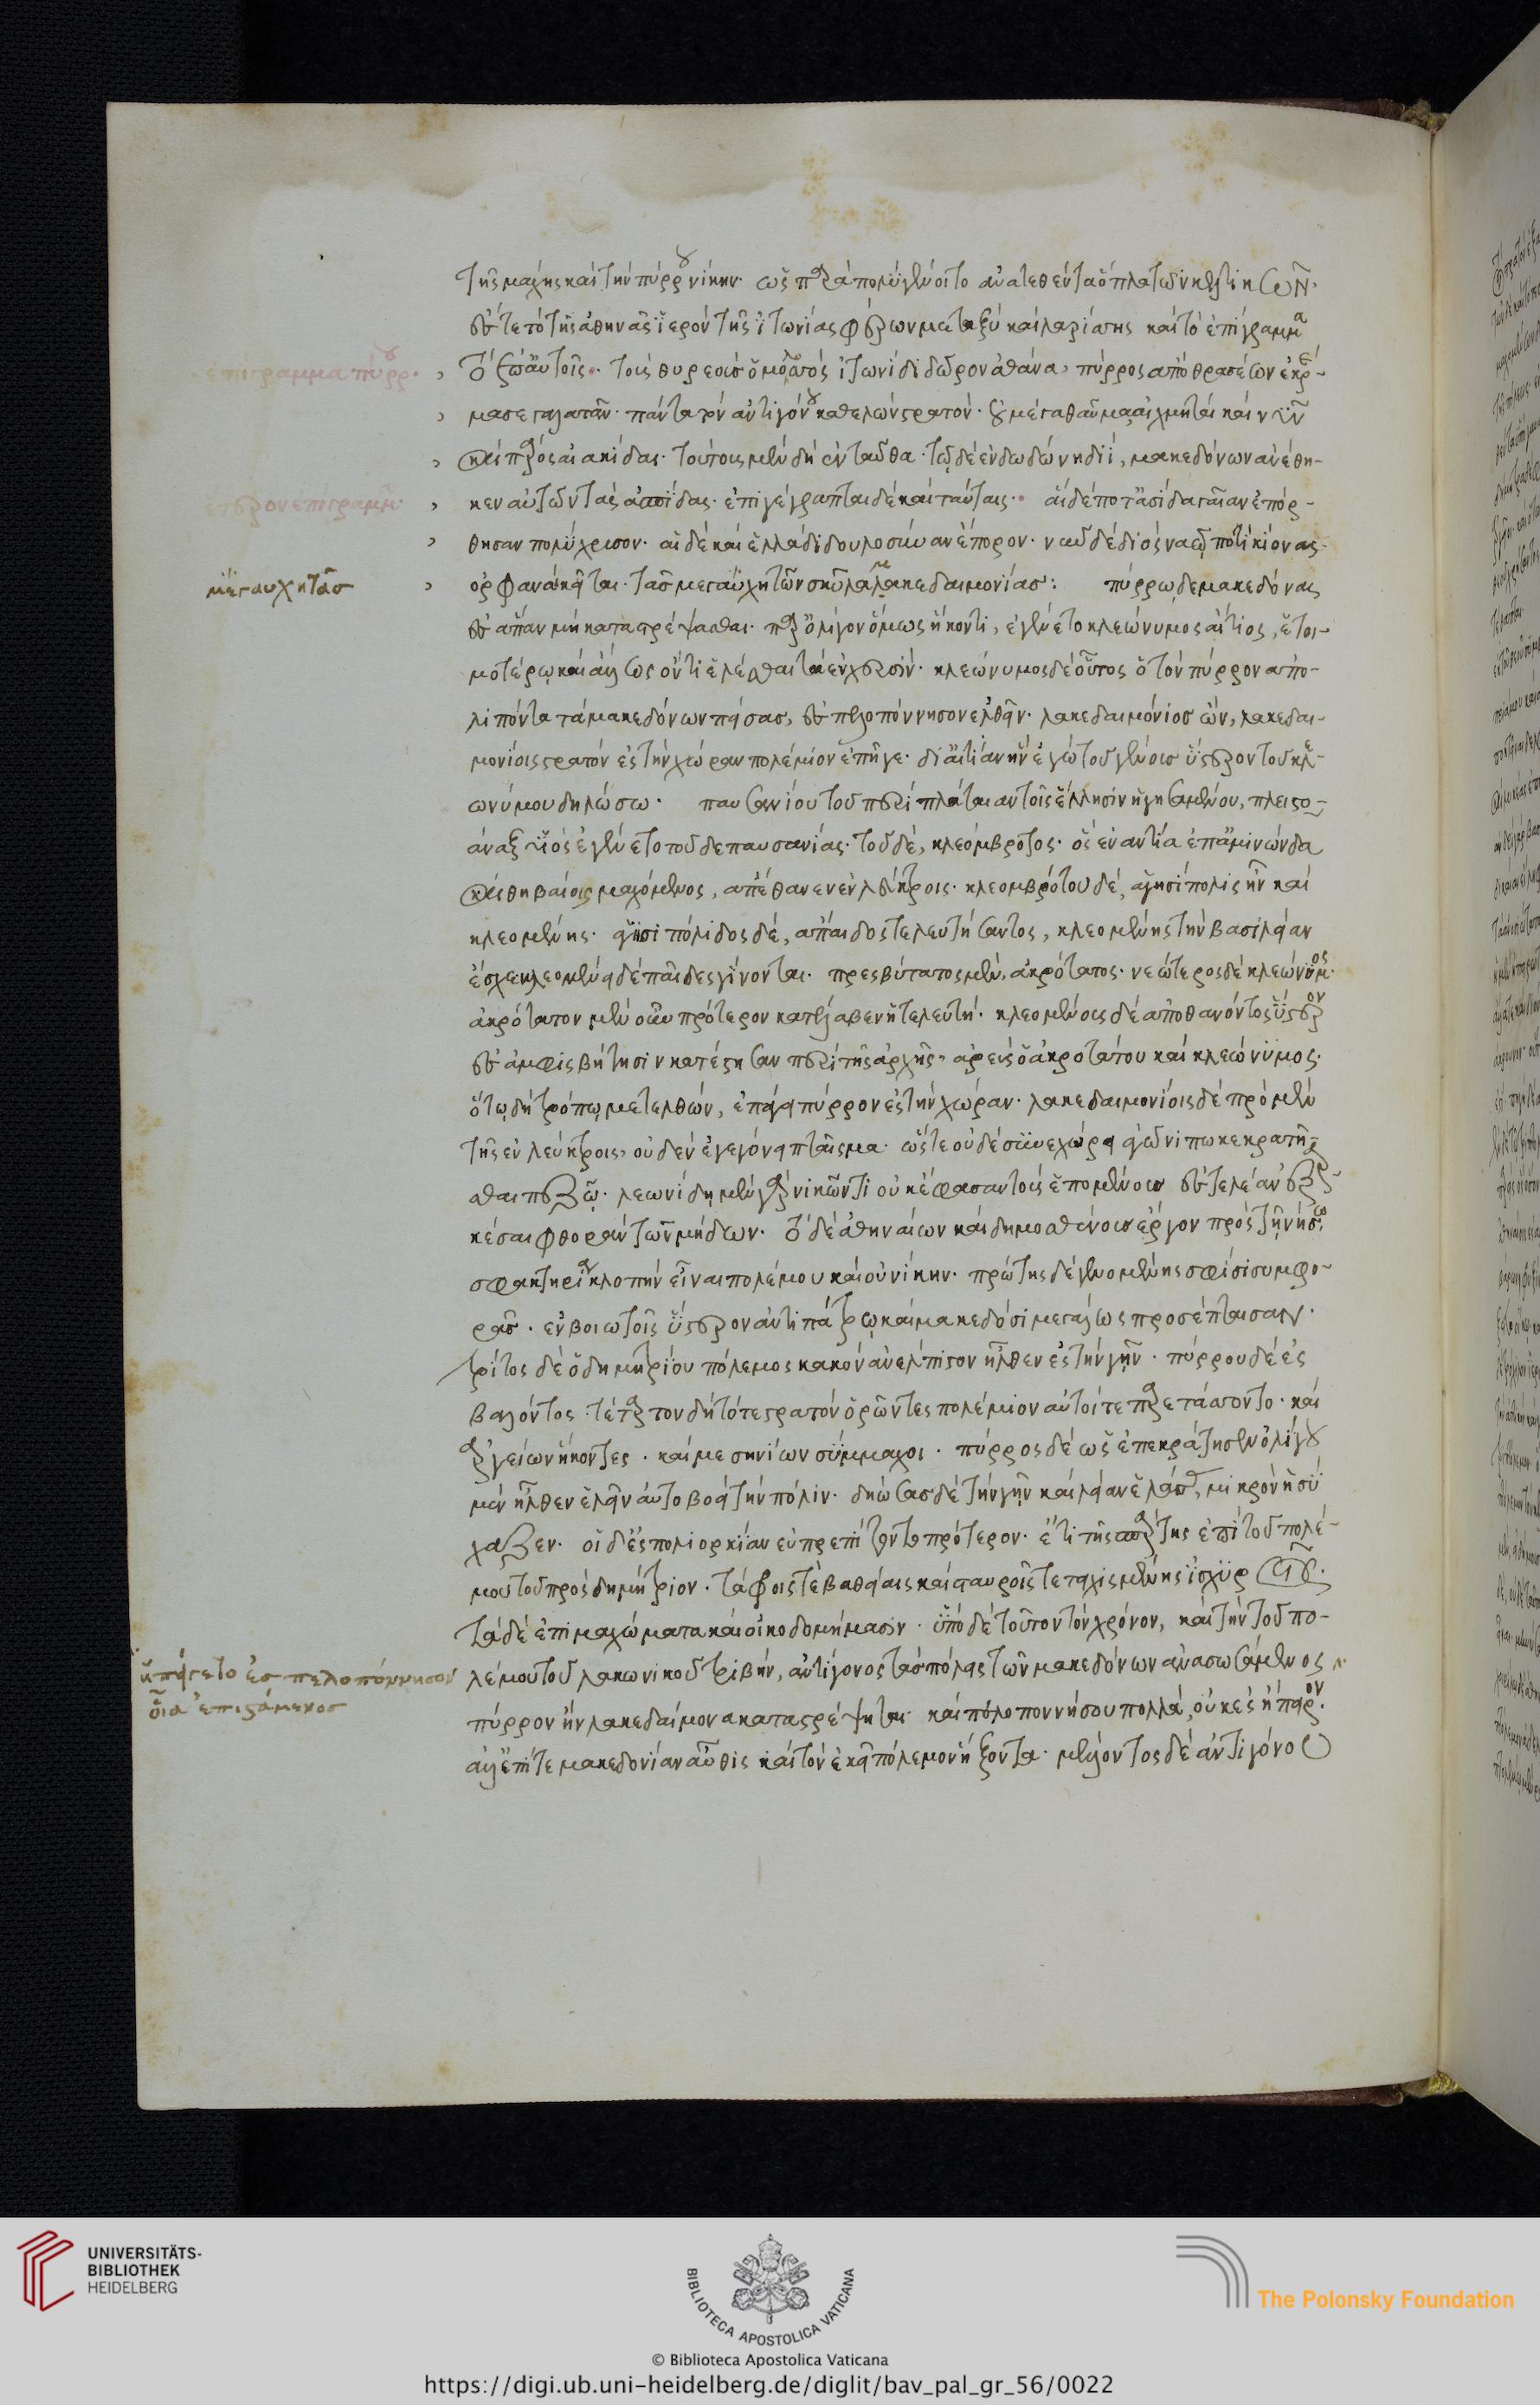 τῆς μάχης καὶ τὴν πύρρου νίκην· ὡς παραπολὺ γένοιτο ἀνατεθέντα ὅπλα τῶν κελτικῶν·
ἔς τε τὸ τῆς ἀθηνᾶς ἱερὸν τῆς ἰτωνίας φερῶν μεταξὺ καὶ λαρίσσης καὶ τὸ ἐπίγραμμα
ἐπίγραμμα πύρρου·
τὸ ἐπ' αὐτοῖς· τοὺς θυρεοὺς ὁ μολοσσὸς ἰτωνίδι δῶρον ἀθάνα, πύρρος ἀπὸ θρασέων ἐκρέ-
μασε γαλατᾶν· πάντα τὸν ἀντιγόνου καθελὼν στρατόν· οὐ μέγα θαῦμα αἰχμηταὶ καὶ νῦν
καὶ πάρος αἰακίδαι· τούτοις μὲν δὴ ἐνταῦθα· τῷ δὲ ἐν δωδώνῃ διὶ, μακεδόνων ἀνέθη-
ἕτερον ἐπίγραμμα·
κεν αὐτῶν τὰς ἀσπίδας· ἐπιγέγραπται δὲ καὶ ταύταις· αἵδέ ποτ' ἀσίδα γαῖαν ἐπόρ-
θησαν πολύχρυσον· αἵδε καὶ ἑλλάδι δουλοσύναν ἔπορον· νῦν δὲ διὸς ναῷ ποτὶ κίονας
μεγαυχητᾶσ
ὀρφανὰ κεῖται· τᾶς μεγαυχήτων σκῦλα λακεδαιμονίας: πύρρῳ δε μακεδόνας
ἐς ἅπαν μὴ καταστρέψασθαι· παρ' ὀλίγον ὅμως ἥκοντι, ἐγένετο κλεώνυμος αἴτιος, ἑτοι-
μοτέρῳ καὶ ἄλλως ὄντι ἑλέσθαι τὰ ἐν χερσίν· κλεώνυμος δὲ οὗτος ὁ τὸν πύρρον ἀπο-
λιπόντα τὰ μακεδόνων πείσας, ἐς πελοπόννησον ἐλθεῖν· λακεδαιμόνιος ὢν, λακεδαι-
μονίοις στρατὸν ἐς τὴν χώραν πολέμιον ἐπῆγε· δι' αἰτίαν ἣν ἐγὼ τοῦ γένους ὕστερον τοῦ κλε-
ωνύμου δηλώσω· παυσανίου τοῦ περὶ πλάταιαν τοῖς ἕλλησιν ἡγησαμένου, πλειστο-
άναξ υἱὸς ἐγένετο τοῦ δε παυσανίας· τοῦ δὲ, κλεόμβροτος· ὃς ἐναντία ἐπαμινώνδα
καὶ θηβαίοις μαχόμενος, ἀπέθανεν ἐν λεύκτροις· κλεομβρότου δὲ, ἀγησίπολις ἦν καὶ
κλεομένης· ἀγησιπόλιδος δὲ, ἄπαιδος τελευτήσαντος, κλεομένης τὴν βασιλείαν
ἔσχε κλεομένει δὲ παῖδες γίνονται· πρεσβύτατος μὲν, ἀκρότατος· νεώτερος δὲ κλεώνυμος·
ἀκρότατον μὲν οὖν πρότερον κατέλαβεν ἡ τελευτή· κλεομένους δὲ ἀποθανόντος ὕστερον
ἐς ἀμφισβήτησιν κατέστησαν περὶ τῆς ἀρχῆς, ἀρεὺς ὁ ἀκροτάτου καὶ κλεώνυμος·
ὅτῳ δὴ τρόπῳ μετελθὼν, ἐπάγει πύρρον ἐς τὴν χώραν· λακεδαιμονίοις δὲ πρὸ μὲν
τῆς ἐν λεύκτροις, οὐδὲν ἐγεγόνει πταῖσμα· ὥστε οὐδὲ συνεχώρει ἀγῶνί πω κεκρατῆ-
σθαι πεζῷ· λεωνίδῃ μὲν γὰρ νικῶντι οὐκ ἔφασαν τοὺς ἑπομένους ἐς τελέαν
κέσαι φθορὰν τῶν μήδων· τὸ δὲ ἀθηναίων καὶ δημοσθένους ἔργον πρὸς τῇ νήσῳ
σφακτηρίᾳ κλοπὴν εἶναι πολέμου καὶ οὐ νίκην· πρώτης δὲ γενομένης σφίσι συμφο-
ρᾶς· ἐν βοιωτοῖς ὕστερον ἀντιπάτρῳ καὶ μακεδόσι μεγάλως προσέπταισαν·
τρίτος δὲ ὁ δημητρίου πόλεμος κακὸν ἀνέλπιστον ἦλθεν ἐς τὴν γῆν· πύρρου δὲ ἐς
βαλόντος τέταρτον δὴ τότε στρατὸν ὁρῶντες πολέμιον αὐτοί τε παρετάσσοντο· καὶ
ἀργείων ἥκοντες· καὶ μεσηνίων σύμμαχοι· πύρρος δὲ ὡς ἐπεκράτησεν ὀλίγου
μὲν ἦλθεν ἑλεῖν αὐτοβοεὶ τὴν πόλιν· δῃώσας δὲ τὴν γῆν καὶ λείαν ἐλάσας, μικρὸν ἡσύ
χαζεν· οἱ δὲ ἐς πολιορκίαν εὐπρεπίζοντο πρότερον· ἔτι τῆς σπάρτης ἐπὶ τοῦ πολέ-
μου τοῦ πρὸς δημήτριον· τάφροις τὲ βαθείαις καὶ σταυροῖς τετειχισμένης ἰσχυροῖς·
τὰ δὲ ἐπιμαχώματα καὶ οἰκοδομήμασιν· ὑπὸ δὲ τοῦτον τὸν χρόνον, καὶ τὴν τοῦ πο-
ἠπείγετο ἐσ πελοπόννησον
οἷα ἐπιστάμενοσ
λέμου τοῦ λακωνικοῦ τριβὴν, ἀντίγονος τὰς πόλεις τῶν μακεδόνων ἀνασωσάμενος
πύρρον ἢν λακεδαίμονα καταστρέψηται καὶ πελοποννήσου πολλὰ, οὐκ ἐς ἤπειρον·
ἀλλ' ἐπί τε μακεδονίαν αὖθις καὶ τὸν ἐκεῖ πόλεμον ἥξοντα· μέλλοντος δὲ ἀντιγόνου
UNIVERSITÄTS-
BIBLIOTHEK
HEIDELBERG
BIBLIOTECA APOSTOLICA VATICANA
The Polonsky Foundation
© Biblioteca Apostolica Vaticana
https://digi.ub.uni-heidelberg.de/diglit/bav_pal_gr_56/0022